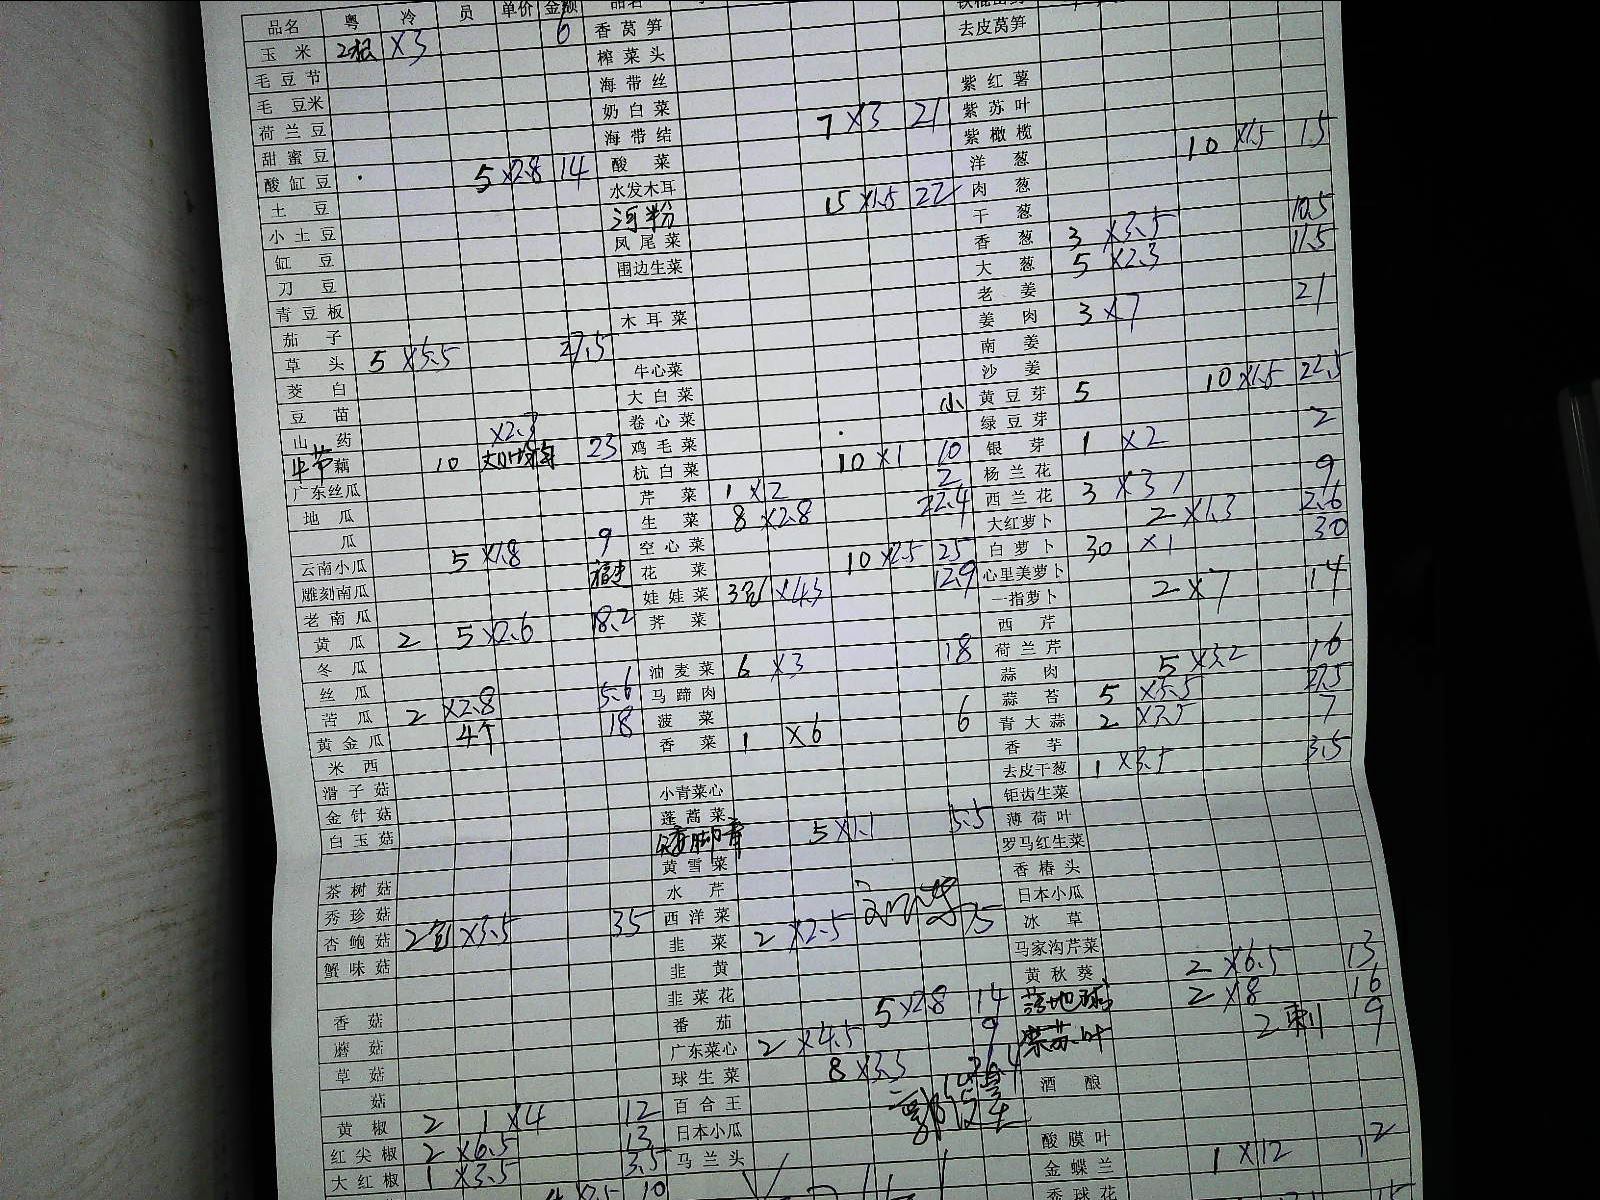 品名 粤 冷 员 单价 金额
玉米 2根 ×3 6
毛豆节
毛豆米
荷兰豆
甜蜜豆
酸缸豆
土豆 5 ×2.8 14
小土豆
缸豆
刀豆
青豆板
茄子
草头 5 ×5.5 27.5
茭白
豆苗
山药
藕 10 ×2.3 23
广东丝瓜
地瓜
瓜
云南小瓜 5 ×1.8 9
雕刻南瓜
老南瓜
黄瓜 2 5 ×2.6 18.2
冬瓜
丝瓜
苦瓜 2 ×2.8 5.6
黄金瓜 4个 18
米西
滑子菇
金针菇
白玉菇
茶树菇
秀珍菇
杏鲍菇 2包 ×3.5 35
蟹味菇
香菇
蘑菇
草菇
菇
黄椒 2 1 ×4 12
红尖椒 2 ×6.5 13
大红椒 1 ×3.5 3.5
4 ×2.5 10
香莴笋
榨菜头
海带丝
奶白菜
海带结 7 ×3 21
酸菜
水发木耳
河粉 15 ×1.5 22
凤尾菜
围边生菜
木耳菜
牛心菜
大白菜
卷心菜
鸡毛菜
杭白菜 10 ×1 10
芹菜 1 ×2 2
生菜 8 ×2.8 22.4
空心菜
福建 花菜 10 ×2.5 25
娃娃菜 3包 ×4.3 12.9
荠菜
油麦菜 6 ×3 18
马蹄肉
菠菜
香菜 1 ×6 6
小青菜心
蓬蒿菜
矮脚青 5 ×1.1 5.5
黄雪菜
水芹
西洋菜
韭菜 2 ×2.5 5
韭黄
韭菜花
番茄 5 ×2.8 14
广东菜心 2 ×4.5 9
球生菜 8 ×3.3 26.4
百合王
日本小瓜
马兰头
去皮莴笋
紫红薯
紫苏叶
紫橄榄
洋葱 10 ×1.5 15
肉葱
干葱
香葱 3 ×3.5 10.5
大葱 5 ×2.3 11.5
老姜
姜肉 3 ×7 21
南姜
沙姜
小 黄豆芽 5 10 ×1.5 22.5
绿豆芽
银芽 1 ×2 2
杨兰花
西兰花 3 ×3 9
大红萝卜 2 ×1.3 2.6
白萝卜 30 ×1 30
心里美萝卜
一指萝卜 2 ×7 14
西芹
荷兰芹
蒜肉 5 ×3.2 16
蒜苔 5 ×5.5 27.5
青大蒜 2 ×3.5 7
香芋
去皮干葱 1 ×3.5 3.5
钜齿生菜
薄荷叶
罗马红生菜
香椿头
日本小瓜
冰草
马家沟芹菜
黄秋葵 2 ×6.5 13
落地球 2 ×8 16
紫苏叶 2刺 9
酒酿
酸膜叶
金蝶兰 1 ×12 12
秀球花